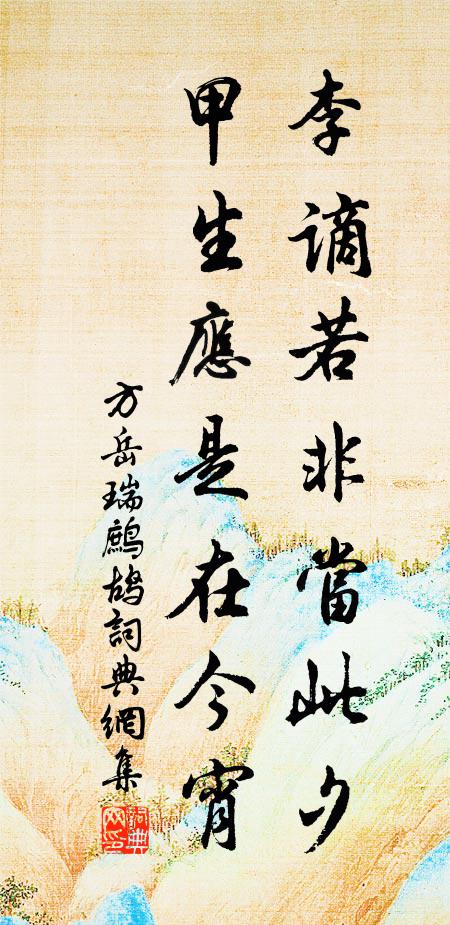 李謫若非當此夕
甲生應是在今宵
方岳瑞鷓鴣詞典網集
詞典網印